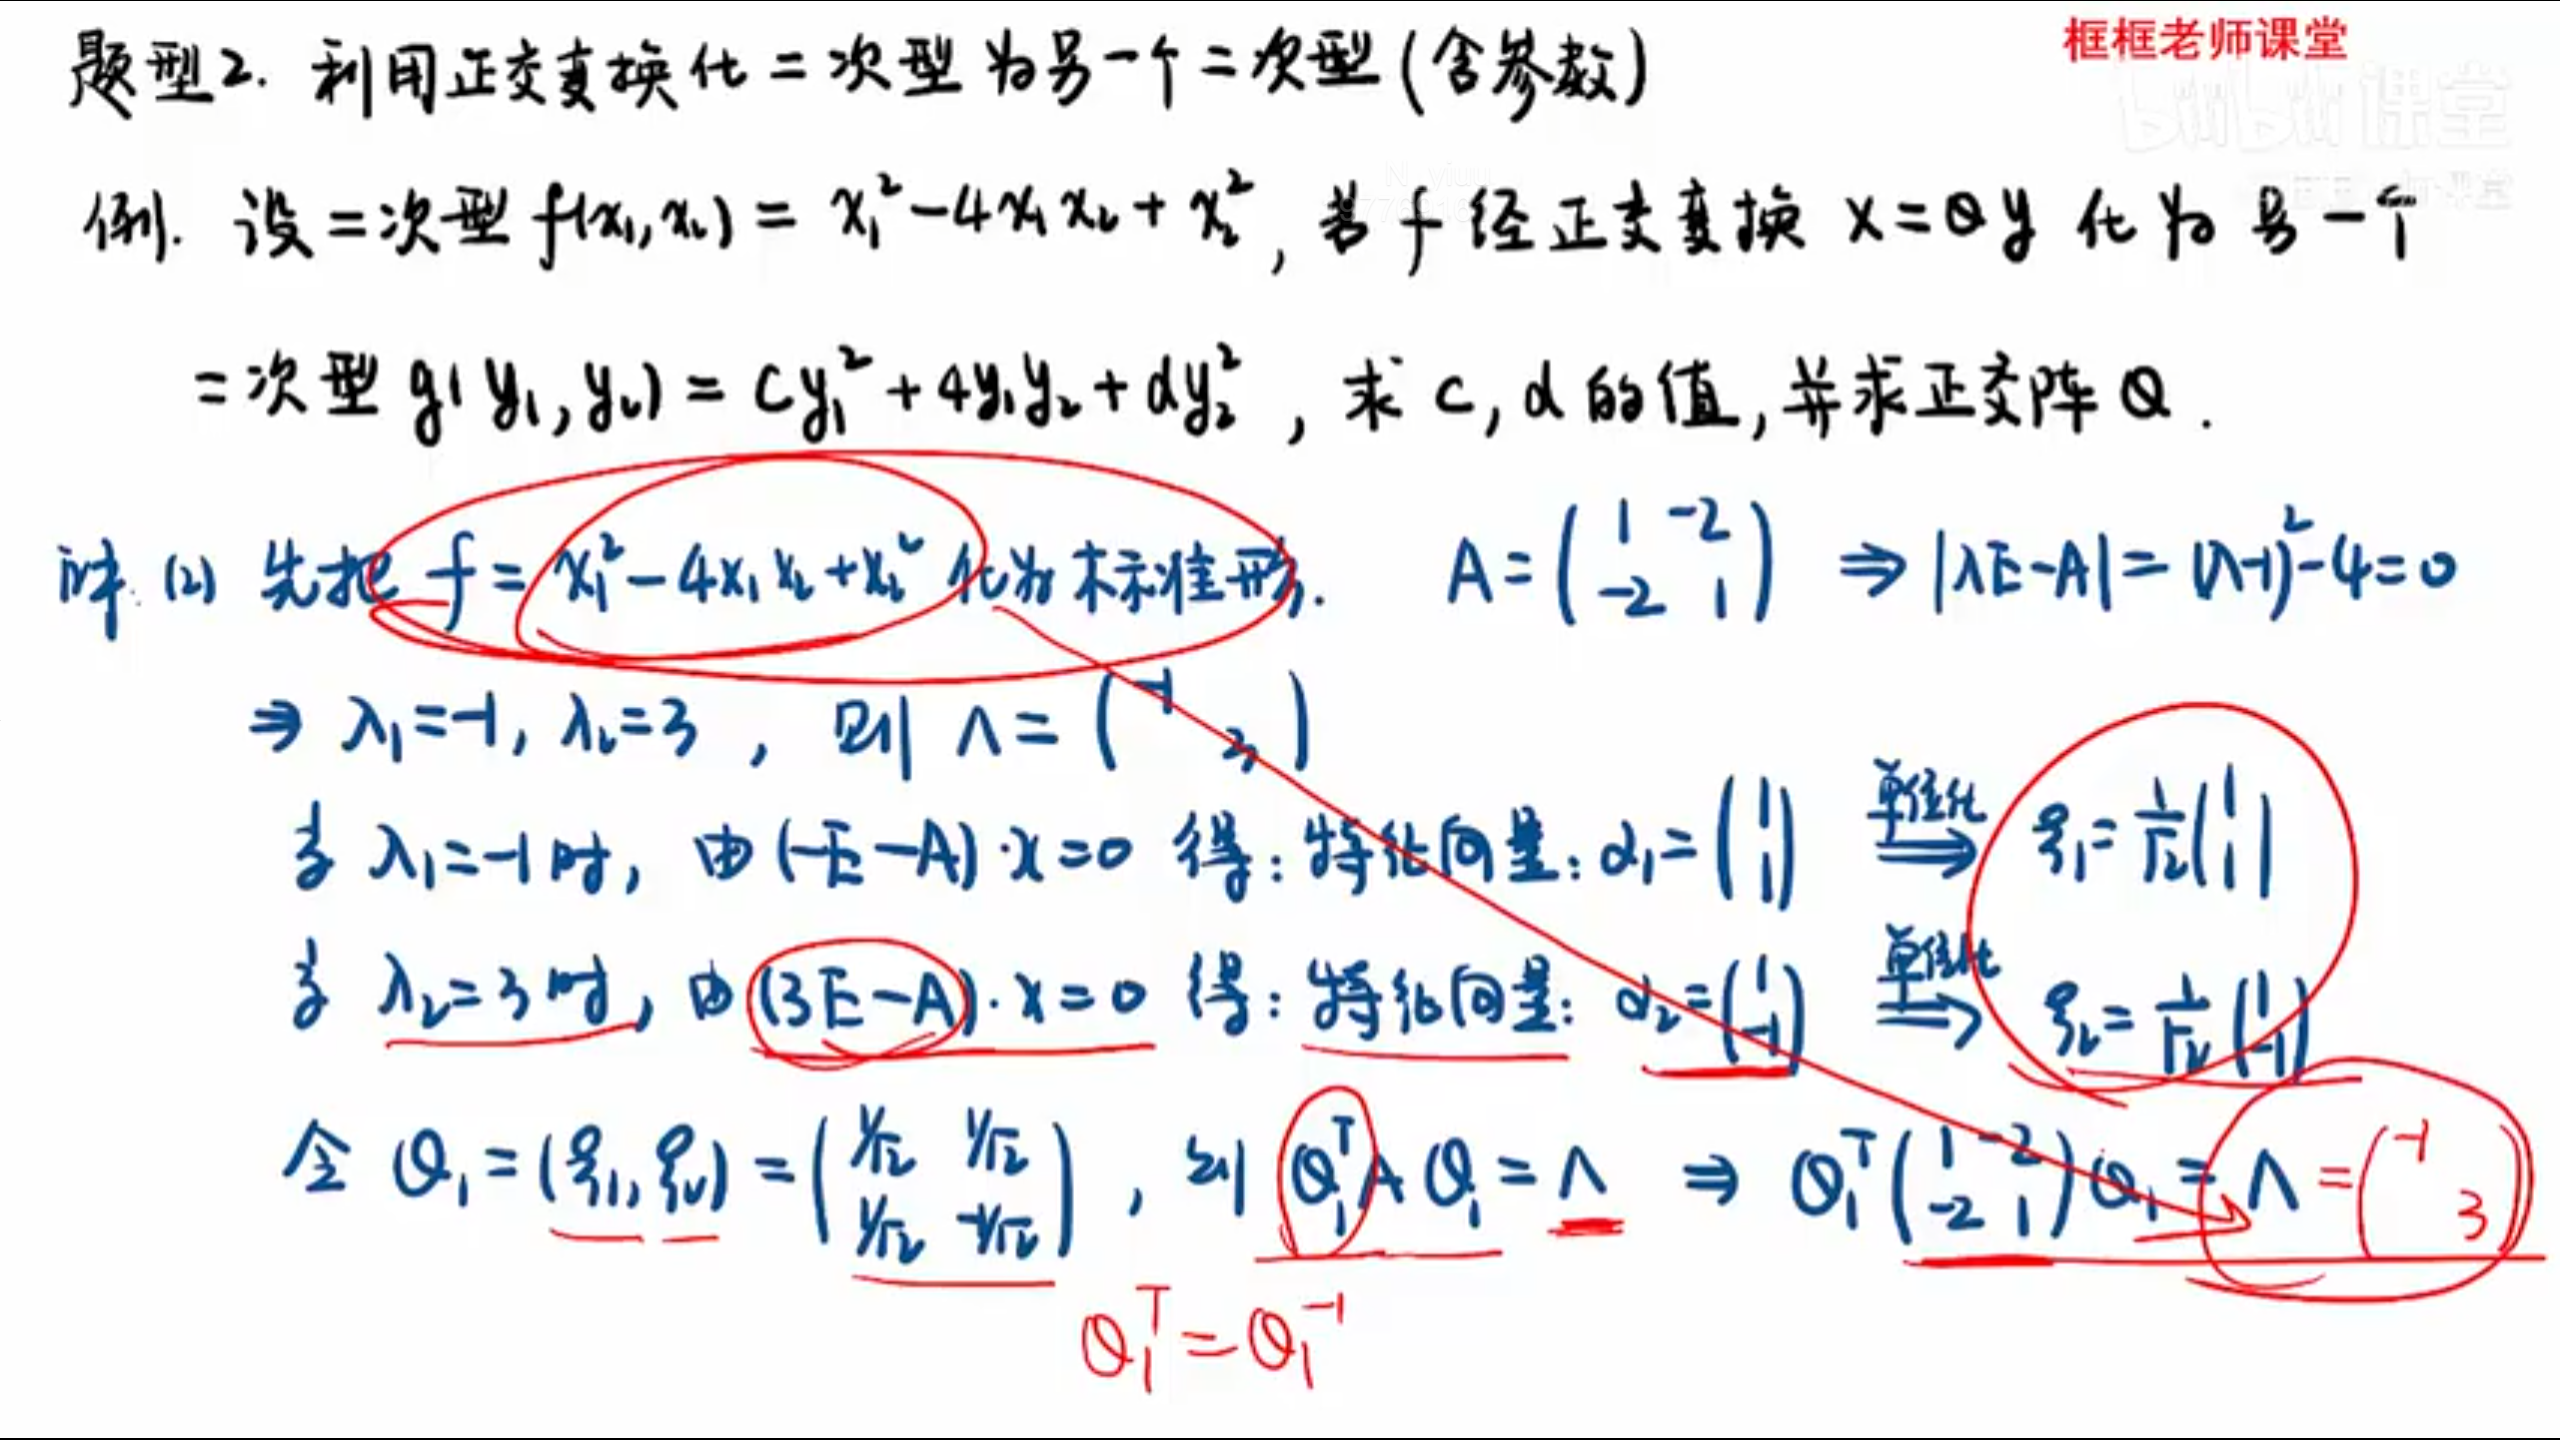 框框老师课堂
bilibili 课堂
题型2. 利用正交变换化二次型为另一个二次型(含参数)
例. 设二次型 f(x₁,x₂) = x₁² - 4x₁x₂ + x₂², 若 f 经正交变换 x = Qy 化为另一个
二次型 g(y₁,y₂) = cy₁² + 4y₁y₂ + dy₂², 求 c, d 的值, 并求正交阵 Q.
(2) 先把 f = x₁² - 4x₁x₂ + x₂² 化为标准形. A = (1 -2; -2 1) ⇒ |λE-A| = (λ-1)² - 4 = 0
⇒ λ₁ = -1, λ₂ = 3, 则 Λ = (-1 3)
当 λ₁ = -1 时, 由 (-E-A)·x = 0 得: 特征向量: α₁ = (1; 1) 单位化 ⇒ ξ₁ = 1/√2 (1; 1)
当 λ₂ = 3 时, 由 (3E-A)·x = 0 得: 特征向量: α₂ = (1; -1) 单位化 ⇒ ξ₂ = 1/√2 (1; -1)
令 Q₁ = (ξ₁, ξ₂) = (1/√2 1/√2; 1/√2 -1/√2), 则 Q₁ᵀAQ₁ = Λ ⇒ Q₁ᵀ(1 -2; -2 1)Q₁ = Λ = (-1 3)
Q₁ᵀ = Q₁⁻¹